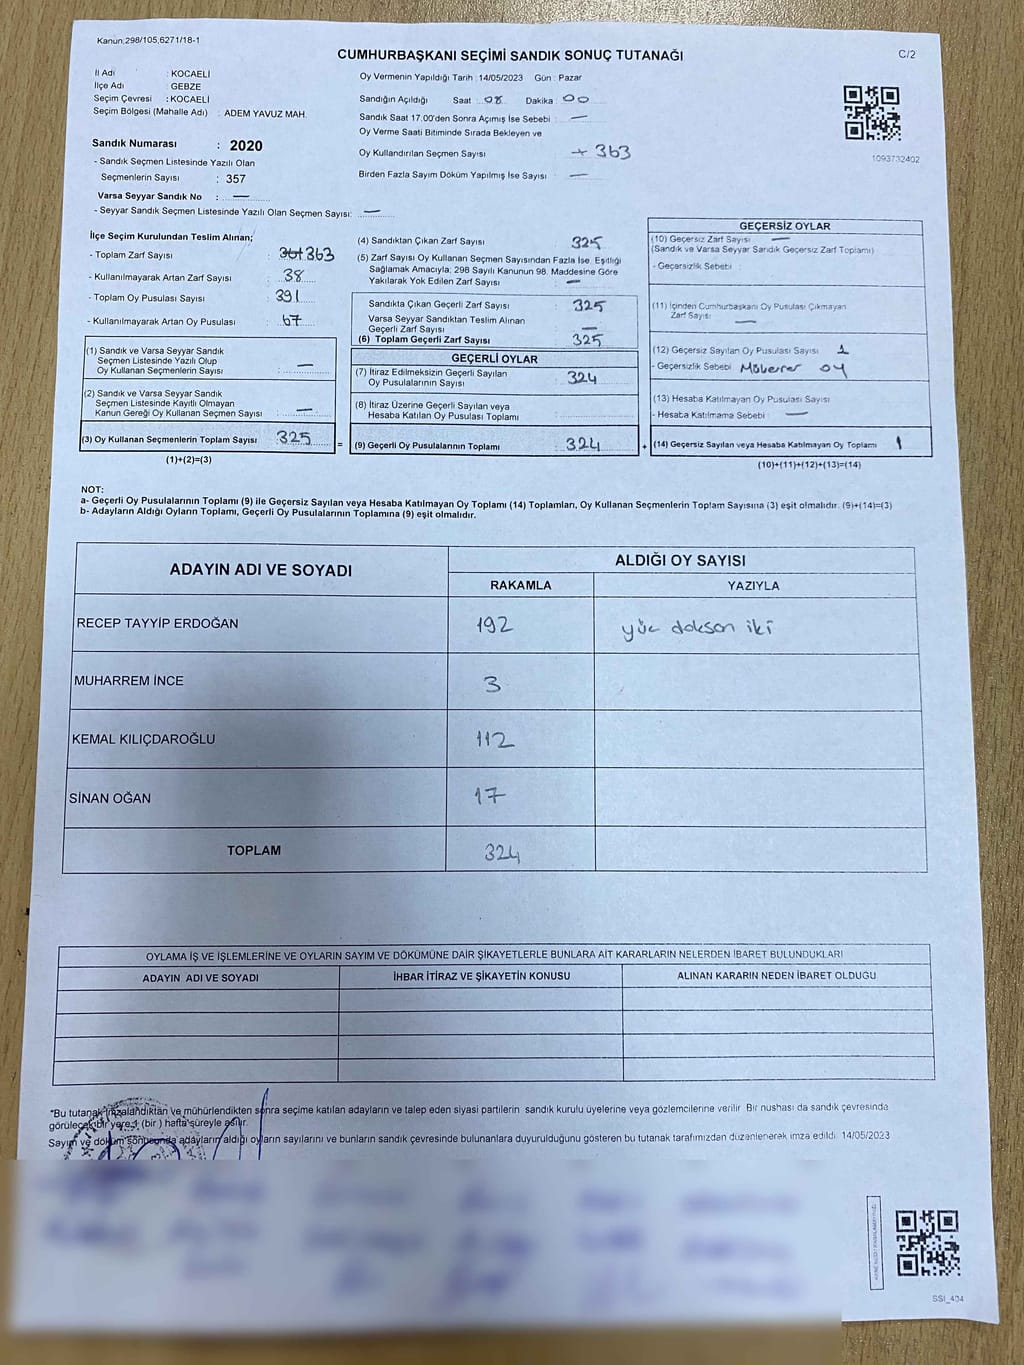 Kanun;298/105,6271/18-1
CUMHURBAŞKANI SEÇİMİ SANDIK SONUÇ TUTANAĞI
C/2
İl Adı : KOCAELİ
İlçe Adı : GEBZE
Seçim Çevresi : KOCAELİ
Seçim Bölgesi (Mahalle Adı) : ADEM YAVUZ MAH.
Oy Vermenin Yapıldığı Tarih : 14/05/2023 Gün : Pazar
Sandığın Açıldığı Saat : 08 Dakika : 00
Sandık Saat 17.00'den Sonra Açımış İse Sebebi : —
Oy Verme Saati Bitiminde Sırada Bekleyen ve
Oy Kullandırılan Seçmen Sayısı 363
Birden Fazla Sayım Döküm Yapılmış İse Sayısı : —
1093732402
Sandık Numarası : 2020
- Sandık Seçmen Listesinde Yazılı Olan
Seçmenlerin Sayısı : 357
Varsa Seyyar Sandık No : —
- Seyyar Sandık Seçmen Listesinde Yazılı Olan Seçmen Sayısı: —
İlçe Seçim Kurulundan Teslim Alınan;
- Toplam Zarf Sayısı : 363
- Kullanılmayarak Artan Zarf Sayısı : 38
- Toplam Oy Pusulası Sayısı : 391
- Kullanılmayarak Artan Oy Pusulası : 67
(1) Sandık ve Varsa Seyyar Sandık
Seçmen Listesinde Yazılı Olup
Oy Kullanan Seçmenlerin Sayısı : —
(2) Sandık ve Varsa Seyyar Sandık
Seçmen Listesinde Kayıtlı Olmayan
Kanun Gereği Oy Kullanan Seçmen Sayısı : —
(3) Oy Kullanan Seçmenlerin Toplam Sayısı : 325
(1)+(2)=(3)
(4) Sandıktan Çıkan Zarf Sayısı 325
(5) Zarf Sayısı Oy Kullanan Seçmen Sayısından Fazla İse, Eşitliği
Sağlamak Amacıyla; 298 Sayılı Kanunun 98. Maddesine Göre
Yakılarak Yok Edilen Zarf Sayısı : —
Sandıkta Çıkan Geçerli Zarf Sayısı : 325
Varsa Seyyar Sandıktan Teslim Alınan
Geçerli Zarf Sayısı : —
(6) Toplam Geçerli Zarf Sayısı : 325
GEÇERLİ OYLAR
(7) İtiraz Edilmeksizin Geçerli Sayılan
Oy Pusulalarının Sayısı : 324
(8) İtiraz Üzerine Geçerli Sayılan veya
Hesaba Katılan Oy Pusulası Toplamı :
=
(9) Geçerli Oy Pusulalarının Toplamı : 324
+
GEÇERSİZ OYLAR
(10) Geçersiz Zarf Sayısı —
(Sandık ve Varsa Seyyar Sandık Geçersiz Zarf Toplamı)
- Geçersizlik Sebebi :
(11) İçinden Cumhurbaşkanı Oy Pusulası Çıkmayan
Zarf Sayısı : —
(12) Geçersiz Sayılan Oy Pusulası Sayısı : 1
- Geçersizlik Sebebi : Mükerrer oy
(13) Hesaba Katılmayan Oy Pusulası Sayısı :
- Hesaba Katılmama Sebebi : —
(14) Geçersiz Sayılan veya Hesaba Katılmayan Oy Toplamı : 1
(10)+(11)+(12)+(13)=(14)
NOT:
a- Geçerli Oy Pusulalarının Toplamı (9) ile Geçersiz Sayılan veya Hesaba Katılmayan Oy Toplamı (14) Toplamları, Oy Kullanan Seçmenlerin Toplam Sayısına (3) eşit olmalıdır. (9)+(14)=(3)
b- Adayların Aldığı Oyların Toplamı, Geçerli Oy Pusulalarının Toplamına (9) eşit olmalıdır.
ADAYIN ADI VE SOYADI
ALDIĞI OY SAYISI
RAKAMLA YAZIYLA
RECEP TAYYİP ERDOĞAN 192 yüz doksan iki
MUHARREM İNCE 3
KEMAL KILIÇDAROĞLU 112
SİNAN OĞAN 17
TOPLAM 324
OYLAMA İŞ VE İŞLEMLERİNE VE OYLARIN SAYIM VE DÖKÜMÜNE DAİR ŞİKAYETLERLE BUNLARA AİT KARARLARIN NELERDEN İBARET BULUNDUKLARI
ADAYIN ADI VE SOYADI İHBAR İTİRAZ VE ŞİKAYETİN KONUSU ALINAN KARARIN NEDEN İBARET OLDUĞU
"Bu tutanak imzalandıktan ve mühürlendikten sonra seçime katılan adayların ve talep eden siyasi partilerin sandık kurulu üyelerine veya gözlemcilerine verilir. Bir nushası da sandık çevresinde
görülecek bir yere 1 (bir ) hafta süreyle asılır.
Sayım ve döküm sonucunda adayların aldığı oyların sayılarını ve bunların sandık çevresinde bulunanlara duyurulduğunu gösteren bu tutanak tarafımızdan düzenlenerek imza edildi. 14/05/2023
SSI_404